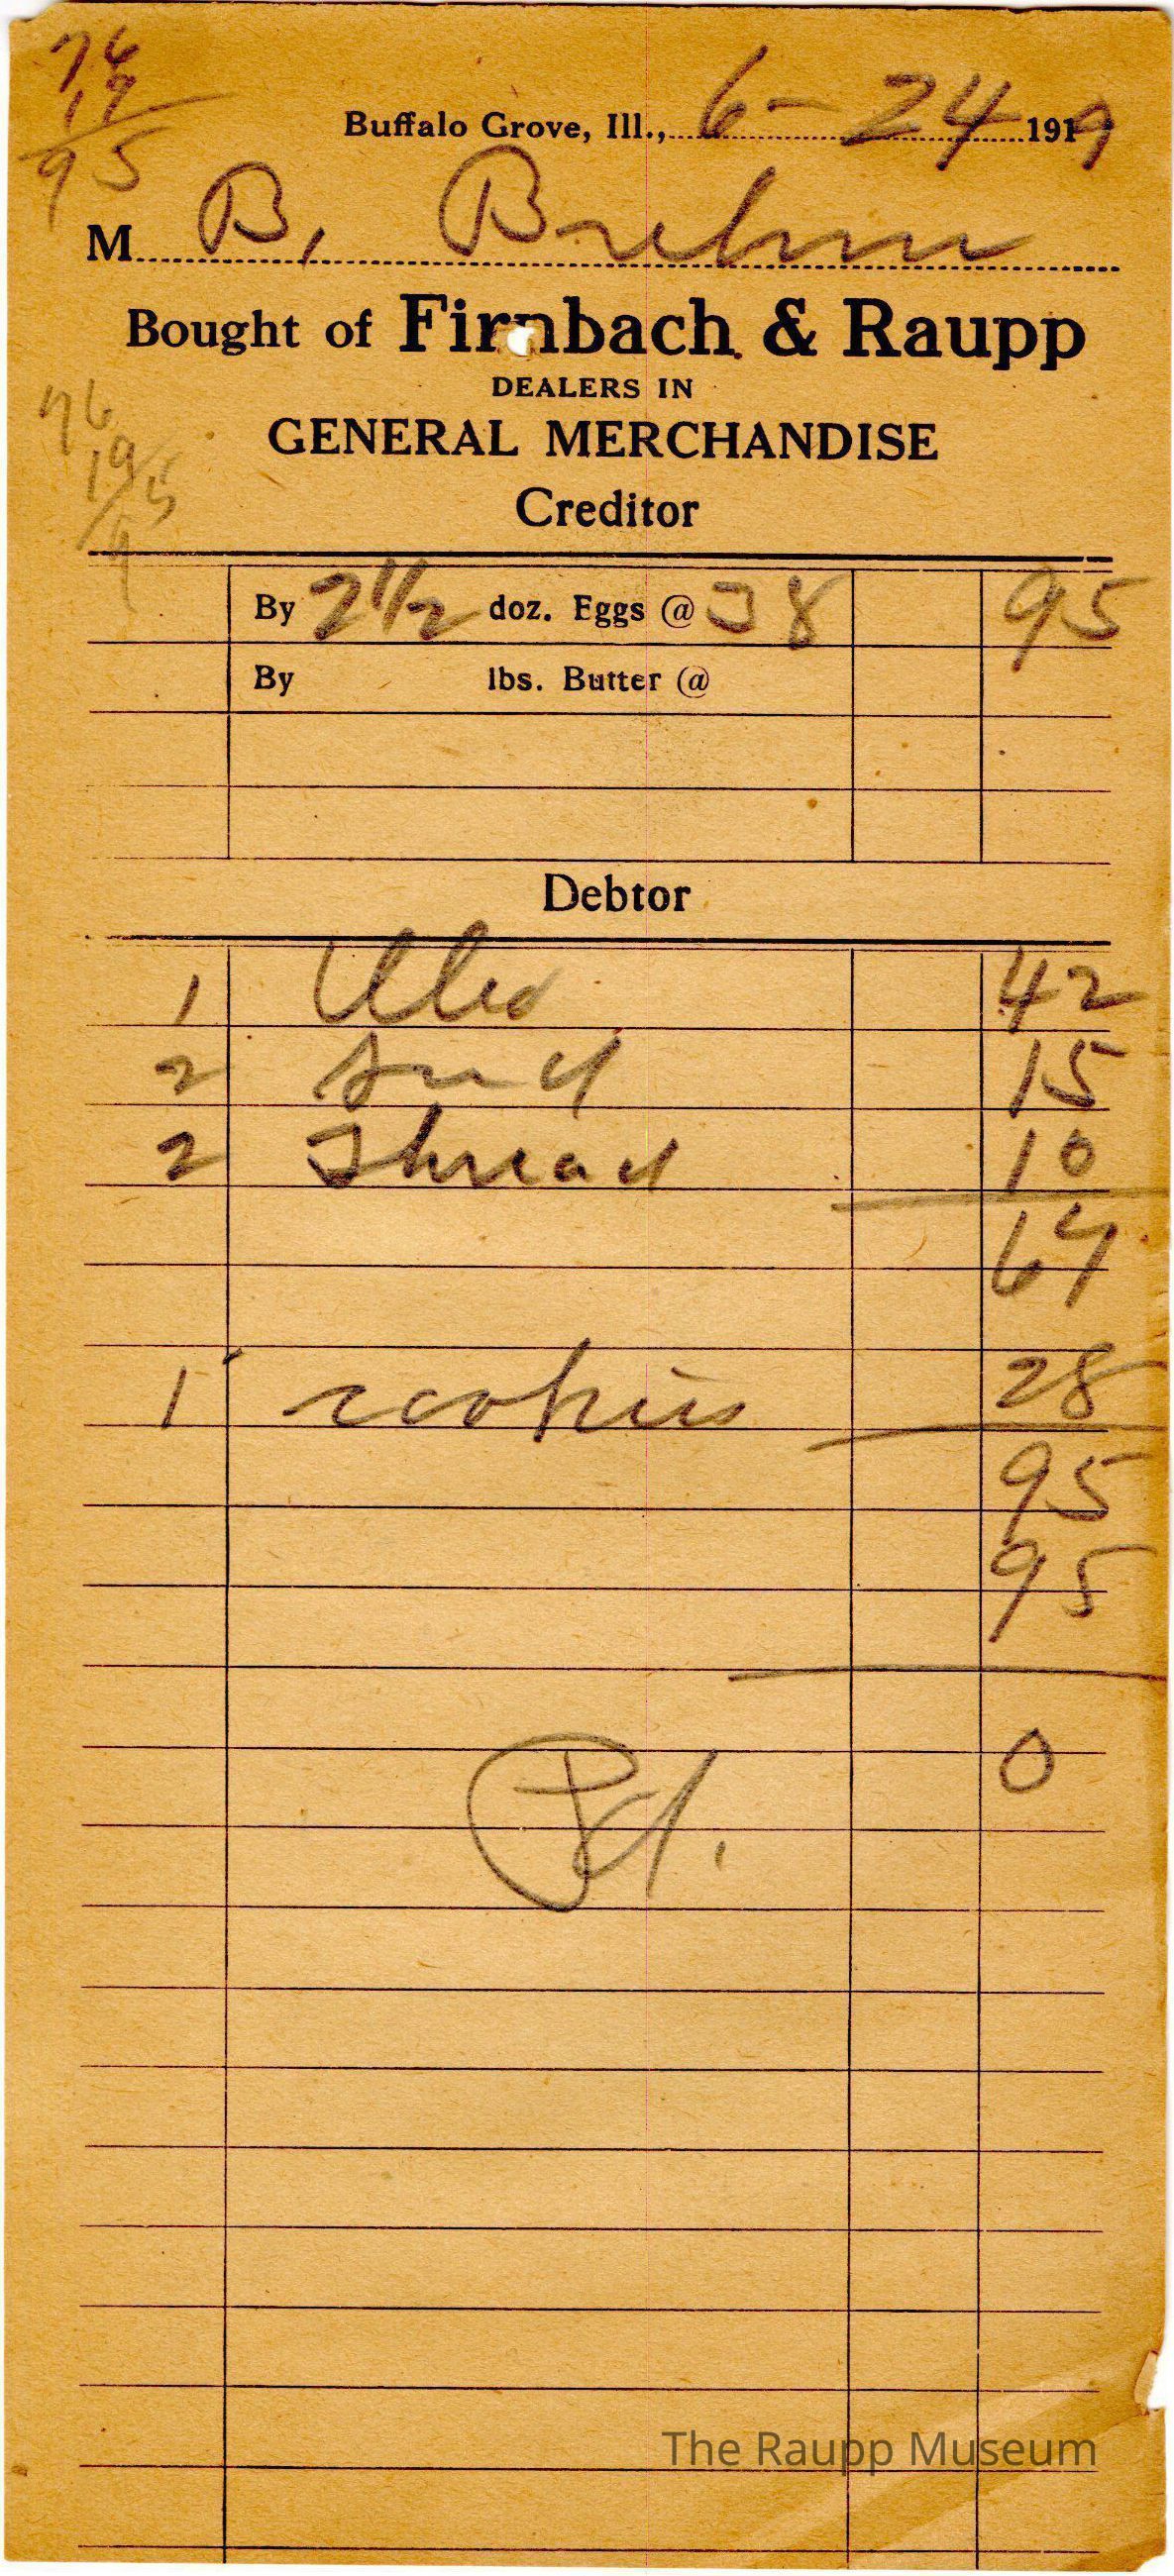 76
19
95
Buffalo Grove, Ill., 6-24 1919
M B. Brehm
Bought of Firnbach & Raupp
DEALERS IN
GENERAL MERCHANDISE
76
19
95
Creditor
By 2 1/2 doz. Eggs @ 38 95
By lbs. Butter @
Debtor
1 42
2 15
2 Thread 10
67
1 cookies 28
95
95
0
Pd.
The Raupp Museum